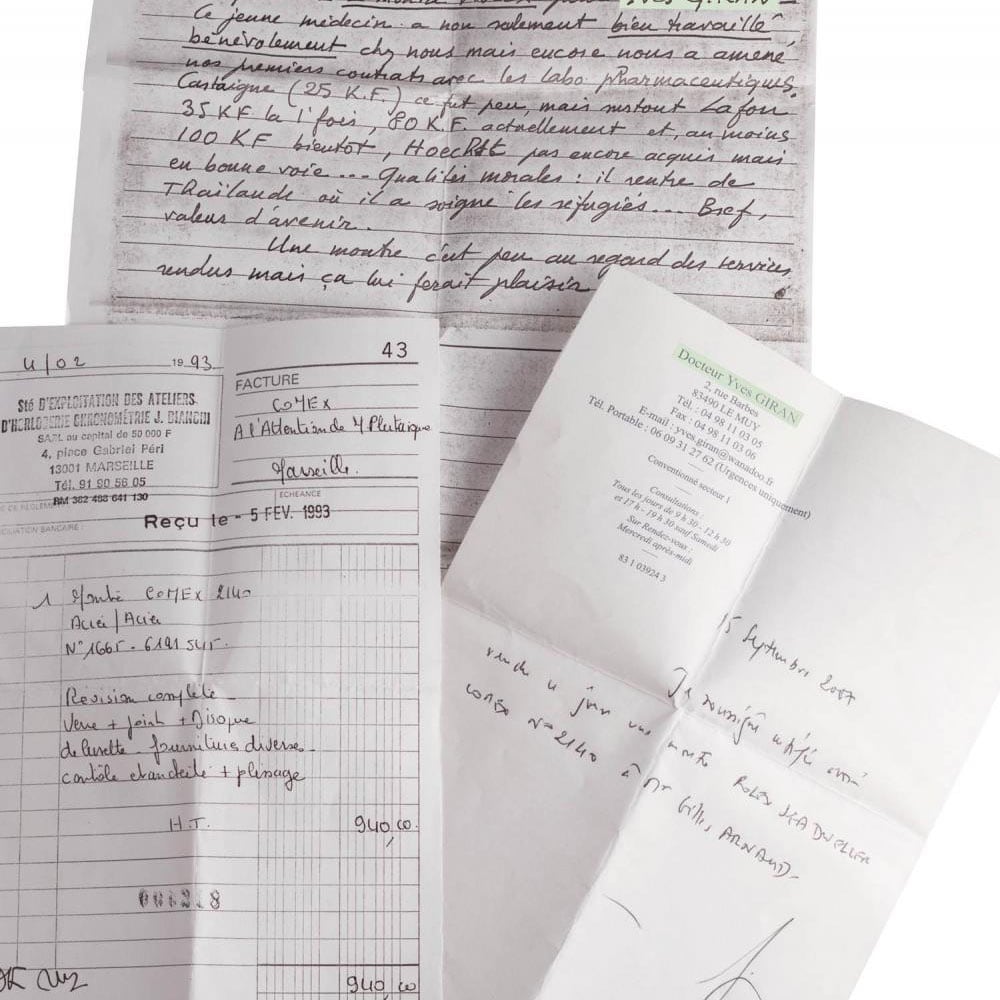 Yves GIRAN
Ce jeune médecin a non seulement bien travaillé
bénévolement chez nous mais encore nous a amené
nos premiers contrats avec les labo pharmaceutiques.
Castaigne (25 K.F.) ce fut peu, mais surtout Lafon
35 KF la 1° fois, 80 K.F. actuellement et, au moins
100 KF bientôt, Hoechst pas encore acquis mais
en bonne voie... Qualités morales : il rentre de
Thaïlande où il a soigné les réfugiés... Bref,
valeur d'avenir.
Une montre c'est peu au regard des services
rendus mais ça lui ferait plaisir
4/02 1993
43
Sté D'EXPLOITATION DES ATELIERS
D'HORLOGERIE CHRONOMÉTRIE J. BIANCHI
SARL au capital de 50 000 F
4, place Gabriel Péri
13001 MARSEILLE
Tél. 91 90 56 05
RM 362 488 641 130
FACTURE
COMEX
A l'Attention de
Marseille.
ECHEANCE
Reçu le - 5 FEV. 1993
1 Montre COMEX 2140
Acier/Acier
N° 1665 -
Revision complète
Verre + joint + Disque
de lunette - fournitures diverse -
contrôle etanchéité + plissage
H.T. 940,00
940,00
Docteur Yves GIRAN
2, rue Barbes
83490 LE MUY
Tél. : 04 98 11 03 05
Fax : 04 98 11 03 06
E-mail : yves.giran@wanadoo.fr
Tél. Portable : 06 09 31 27 62 (Urgences uniquement)
Conventionné secteur 1
Consultations :
Tous les jours de 9 h 30 - 12 h 30
et 17 h - 19 h 30 sauf Samedi
Sur Rendez-vous :
Mercredi après-midi
83 1 03924 3
15 Septembre 2007
Je soussigné certifie avoir
vendu ce jour une montre ROLEX SEA DWELLER
COMEX N° 2140 à Mr Gilles ARNAUD-